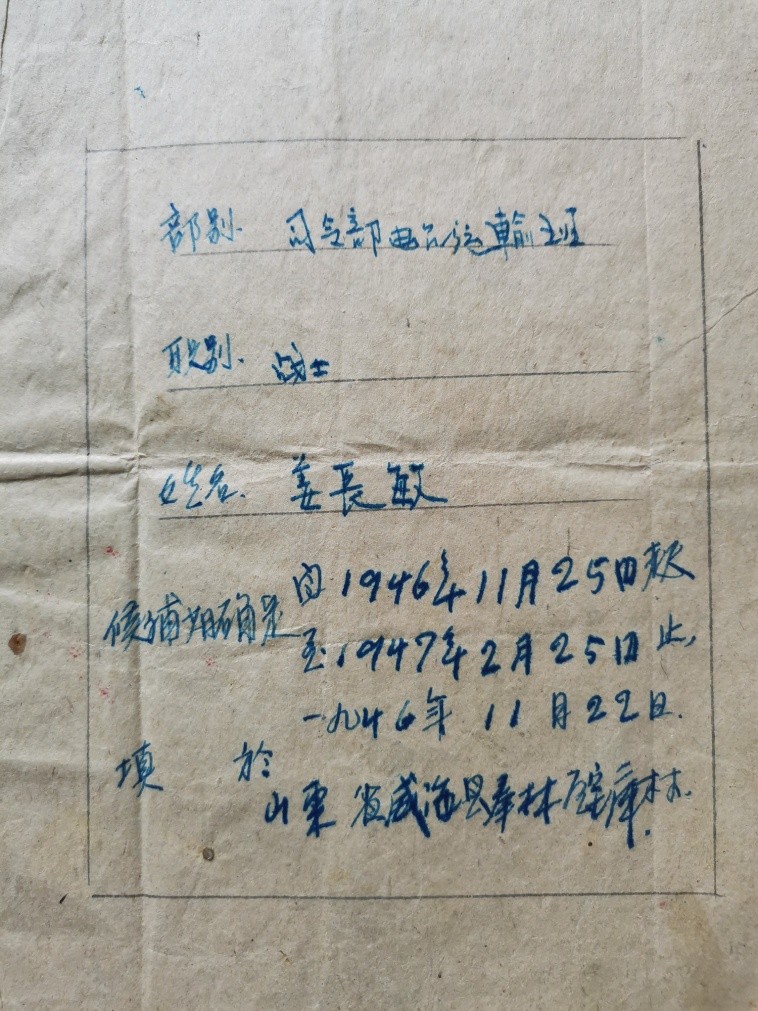 部别. 司令部电台运輸班
职别. 战士
姓名. 姜長敏
候補期确是 由1946年11月25日起
至1947年2月25日止,
一九46年 11月22日.
填 於
山東省威海县